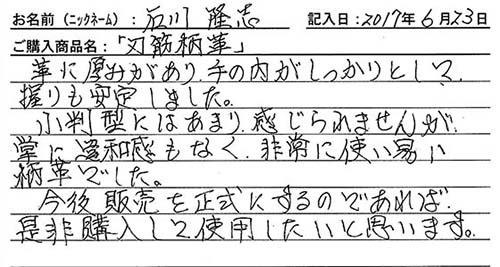 お名前（ニックネーム）：石川 隆志 記入日：2017年6月23日
ご購入商品名：「刃筋柄革」
革に厚みがあり、手の内がしっかりとして、
握りも安定しました。
小判型にはあまり、感じられませんが、
掌に違和感もなく、非常に使い易い
柄革でした。
今後販売を正式にするのであれば、
是非購入して使用したいと思います。